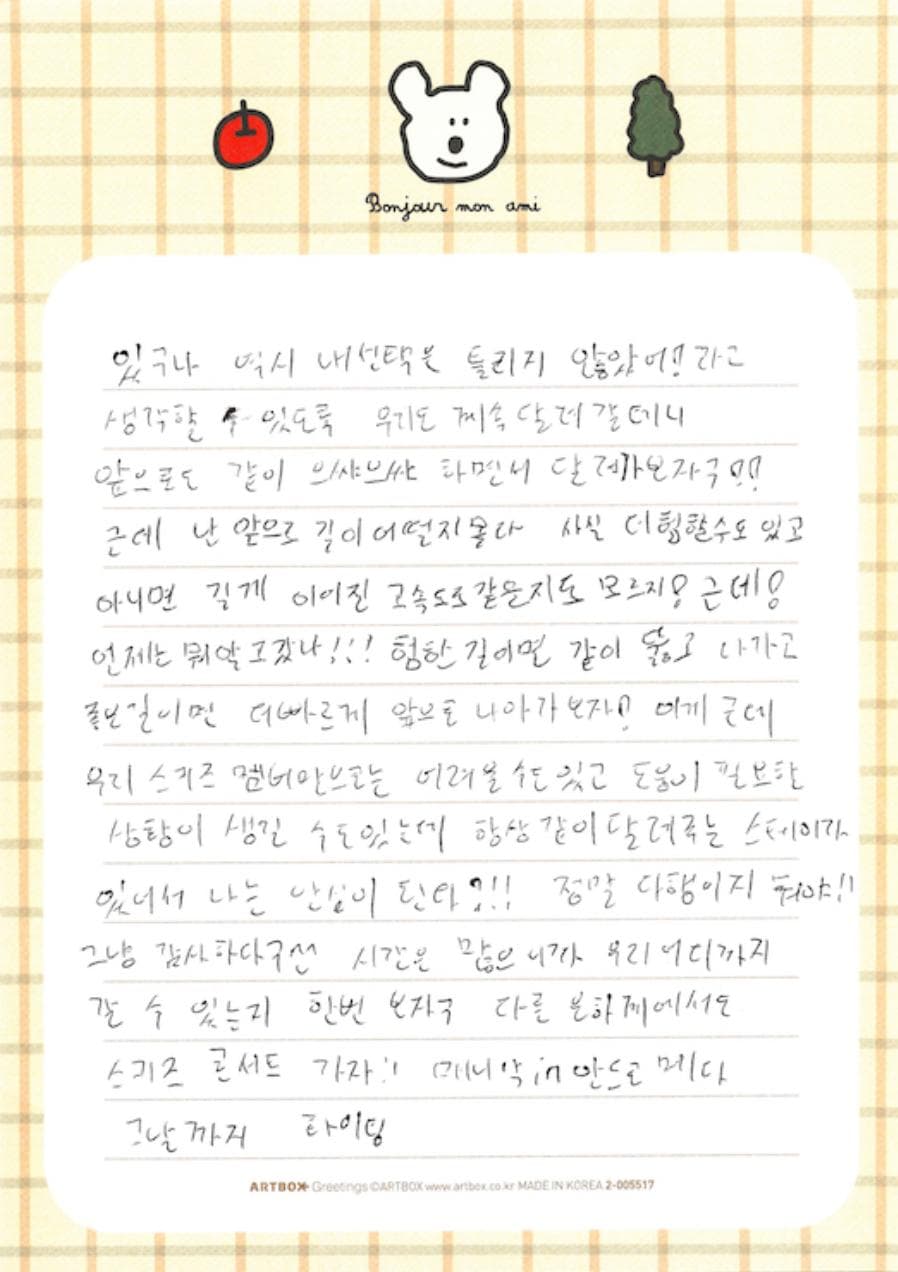 Bonjour mon ami
있구나 역시 내선택은 틀리지 않았어! 라고
생각할 수 있도록 우리도 계속 달려갈테니
앞으로도 같이 으쌰으쌰 하면서 달려가보자구!!
근데 난 앞으로 길이 어떨지 몰라 사실 더 험할수도 있고
아니면 길게 이어진 고속도로같은지도 모르지! 근데!
언제는 뭐 알고갔나!!! 험한 길이면 같이 뚫고 나가고
좋은길이면 더빠르게 앞으로 나아가보자! 이게 근데
우리 스키즈 멤버만으로는 어려울 수도 있고 도움이 필요한
상황이 생길 수도있는데 항상 같이 달려주는 스테이가
있어서 나는 안심이 된다!!! 정말 다행이지 뭐야!!
그냥 감사하다구선 시간은 많으니까 우리 어디까지
갈 수 있는지 한번 보자구 다른 은하계에서도
스키즈 콘서트 가자!! 매니악 in 안드로메다
그날까지 화이팅
ARTBOX Greetings ©ARTBOX www.artbox.co.kr MADE IN KOREA 2-005517